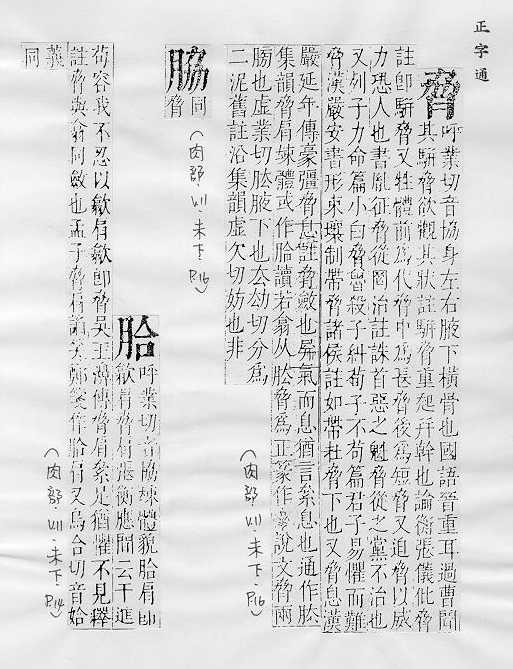 正字通
脅呼業切音協身左右腋下橫骨也國語晉重耳過曹聞
其駢脅欲觀其狀註駢脅重幷幹也論衡張儀仳脅
註卽駢脅又牲體前爲代脅中爲長脅後爲短脅又迫脅以威
力恐人也書胤征脅從罔治註誅首惡之魁脅從之黨不治也
又列子力命篇小白脅魯殺子糾荀子不苟篇君子易懼而難
脅漢嚴安書形束壤制帶脅諸侯註如帶在脅下也又脅息漢
嚴延年傳豪彊脅息註脅斂也屏氣而息猶言累息也通作胠
集韻脅肩竦體或作䏩讀若翕从胠脅爲正篆作脅說文脅兩
膀也虛業切胠腋下也去劫切分爲
二泥舊註沿集韻虛欠切妨也非
(肉部·VII·未下·P.16)
脇同
脅
(肉部·VII·未下·P.16)
䏩呼業切音協竦體貌䏩肩卽
歙肩脅肩張衡應間云干進
苟容我不忍以歙肩歙卽脅吳王濞傳脅肩累足猶懼不見釋
註脅與翕同斂也孟子脅肩諂笑鄭箋作䏩肩又烏合切音姶
義
同
(肉部·VII·未下·P.14)